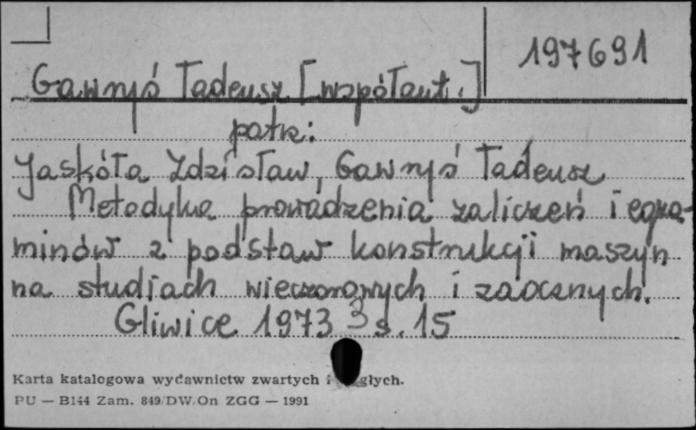 197691
Gawryś Tadeusz [współaut.]
patrz:
Jaskóła Zdzisław, Gawryś Tadeusz
Metodyka prowadzenia zaliczeń i egza-
minów z podstaw konstrukcji maszyn
na studiach wieczorowych i zaocznych.
Gliwice 1973 s. 15
Karta katalogowa wydawnictw zwartych i
PU — B144 Zam. 849/DW/On ZGG — 1991